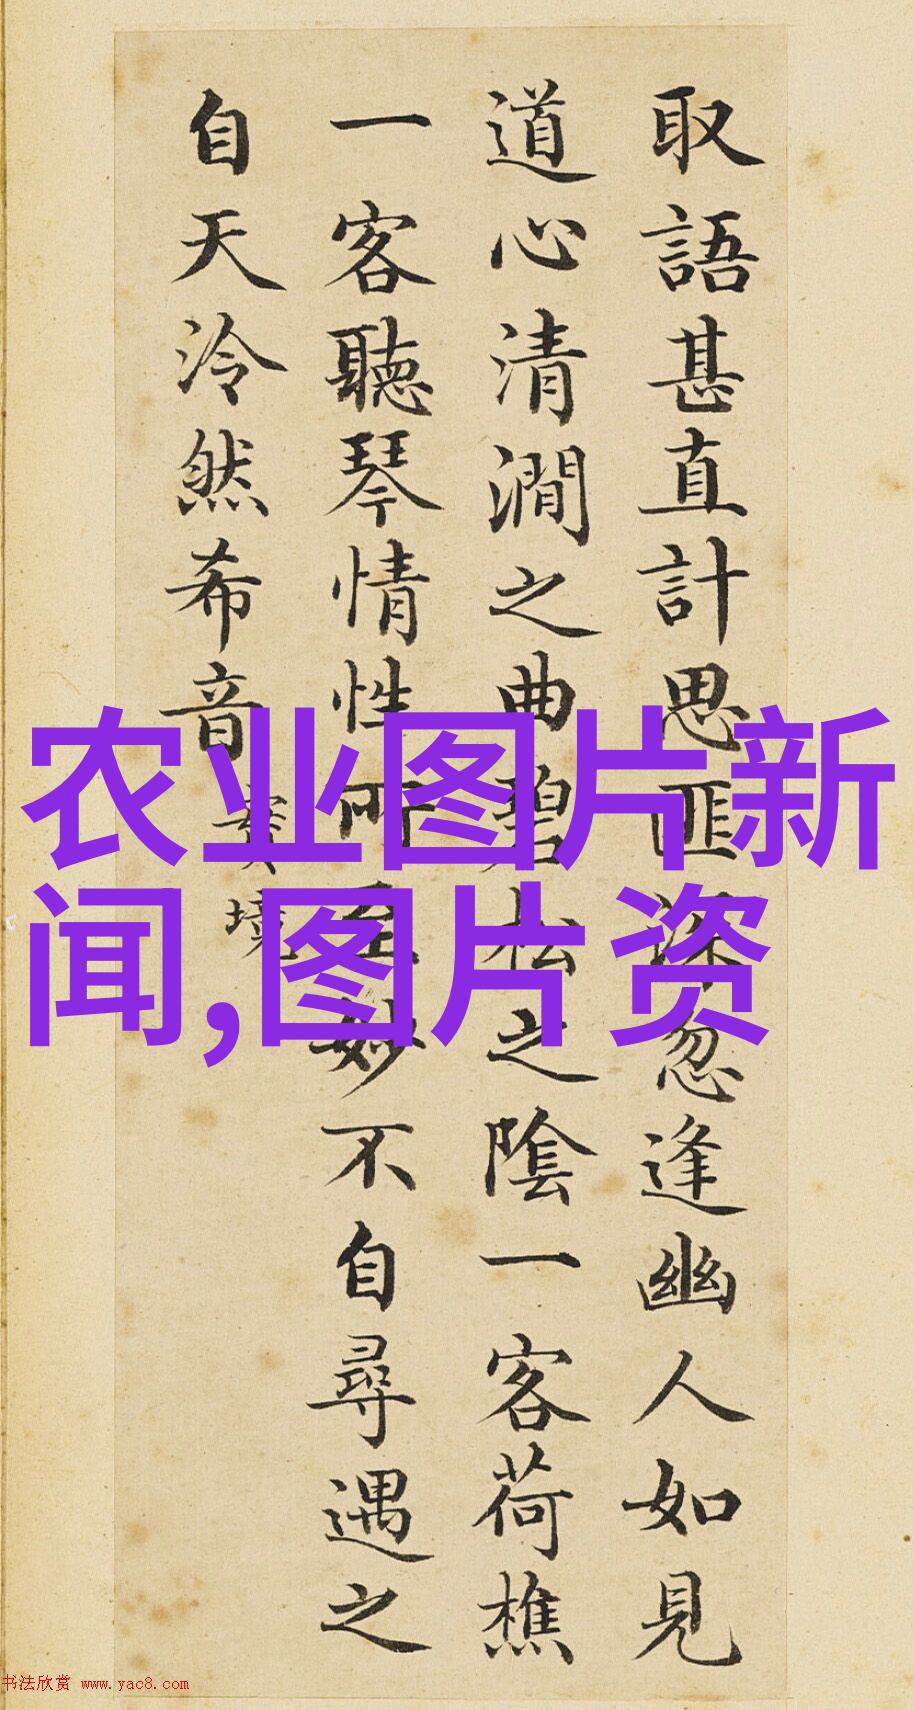 取語甚直計思匪深忽逢幽人如見
道心清澗之曲碧松之陰一客荷樵
一客聽琴情性所至妙不自尋遇之
自天泠然希音
實境
农业图片新
闻,图片资
书法欣赏 www.yac8.com